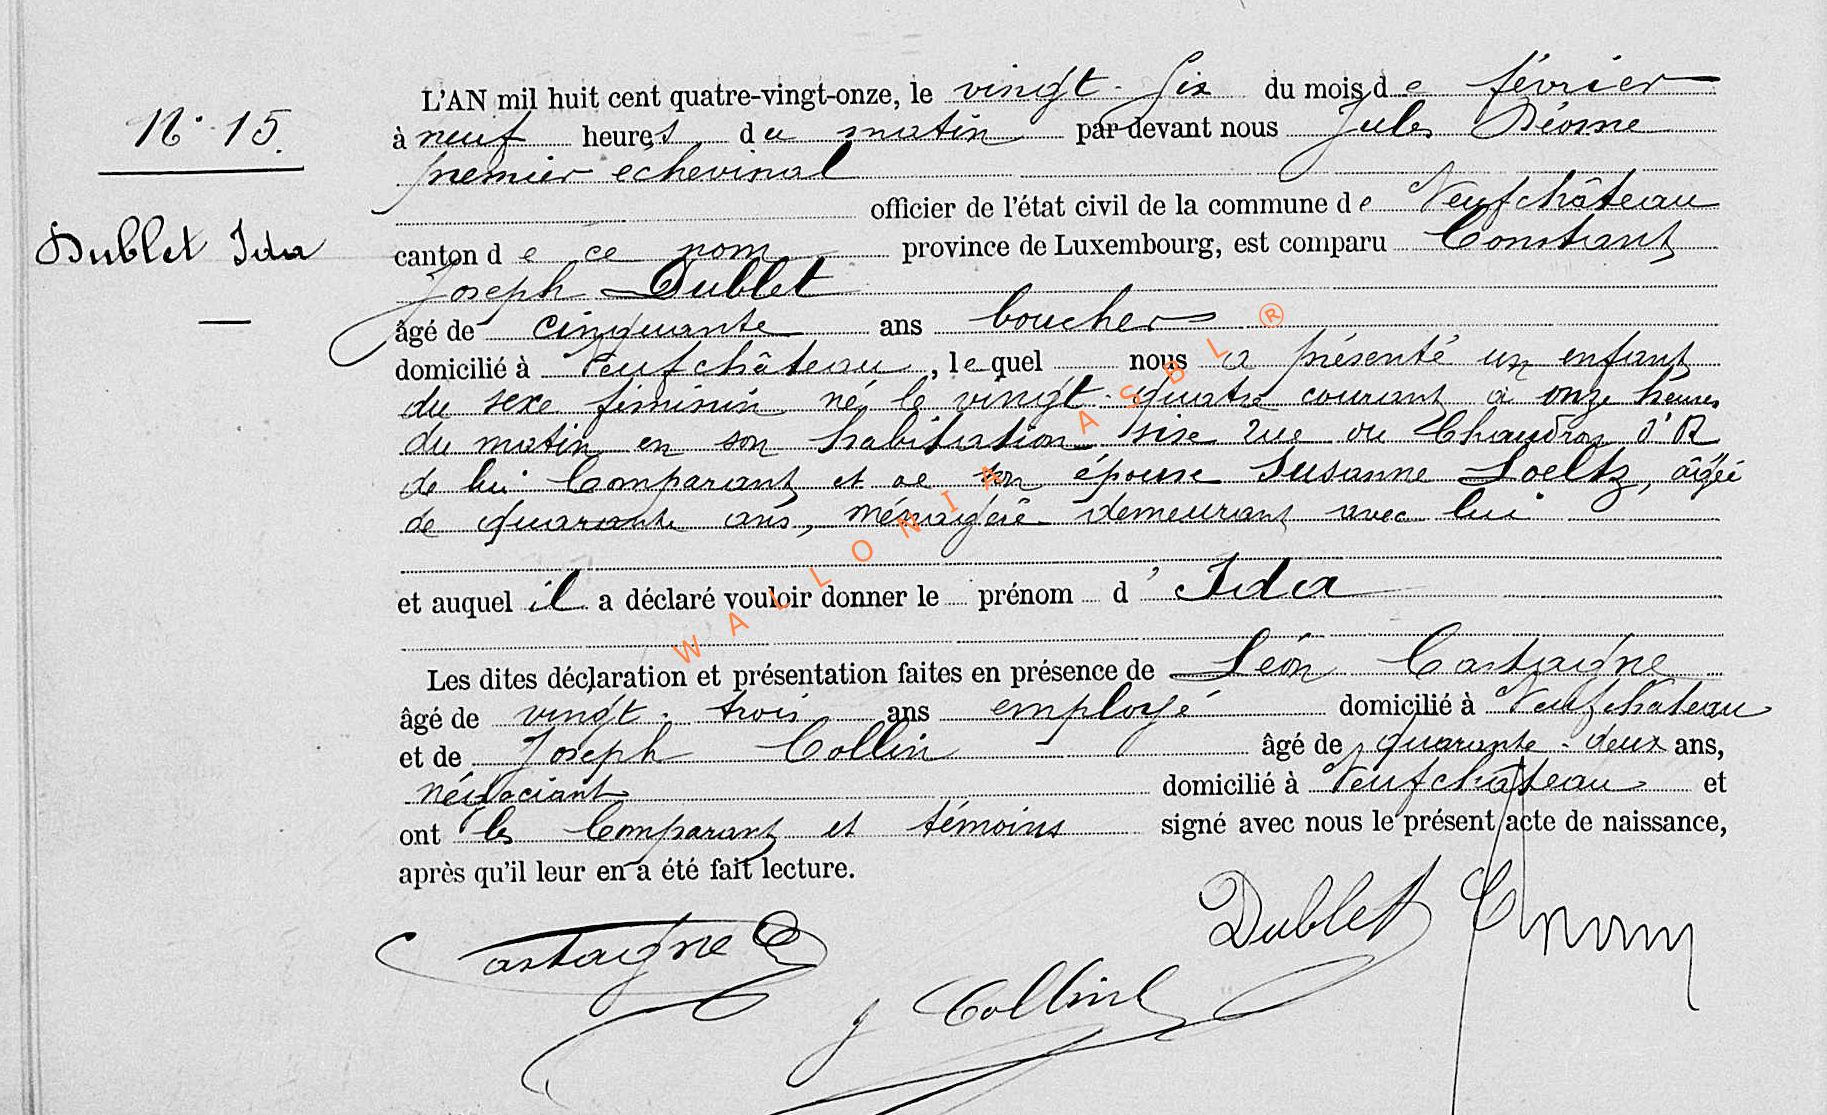 N° 15.
Dublet Ida
L'AN mil huit cent quatre-vingt-onze, le vingt-six du mois de février
à neuf heures du matin par devant nous Jules
premier échevinal
officier de l'état civil de la commune de Neufchâteau
canton de ce nom province de Luxembourg, est comparu Constant
Joseph Dublet
âgé de cinquante ans boucher
domicilié à Neufchâteau, lequel nous a présenté un enfant
du sexe féminin né le vingt-quatre courant à onze heures
du matin en son habitation sise rue du Chaudron d'R
de lui Comparant et de son épouse Susanne Loeltz, âgée
de quarante ans, ménagère demeurant avec lui
et auquel il a déclaré vouloir donner le prénom d'Ida
Les dites déclaration et présentation faites en présence de Léon Castaigne
âgé de vingt-trois ans employé domicilié à Neufchâteau
et de Joseph Collin âgé de quarante-deux ans,
négociant domicilié à Neufchâteau et
ont les Comparant et témoins signé avec nous le présent acte de naissance,
après qu'il leur en a été fait lecture.
Castaigne
J Collin
Dublet C
WALLONIA ASBL ®